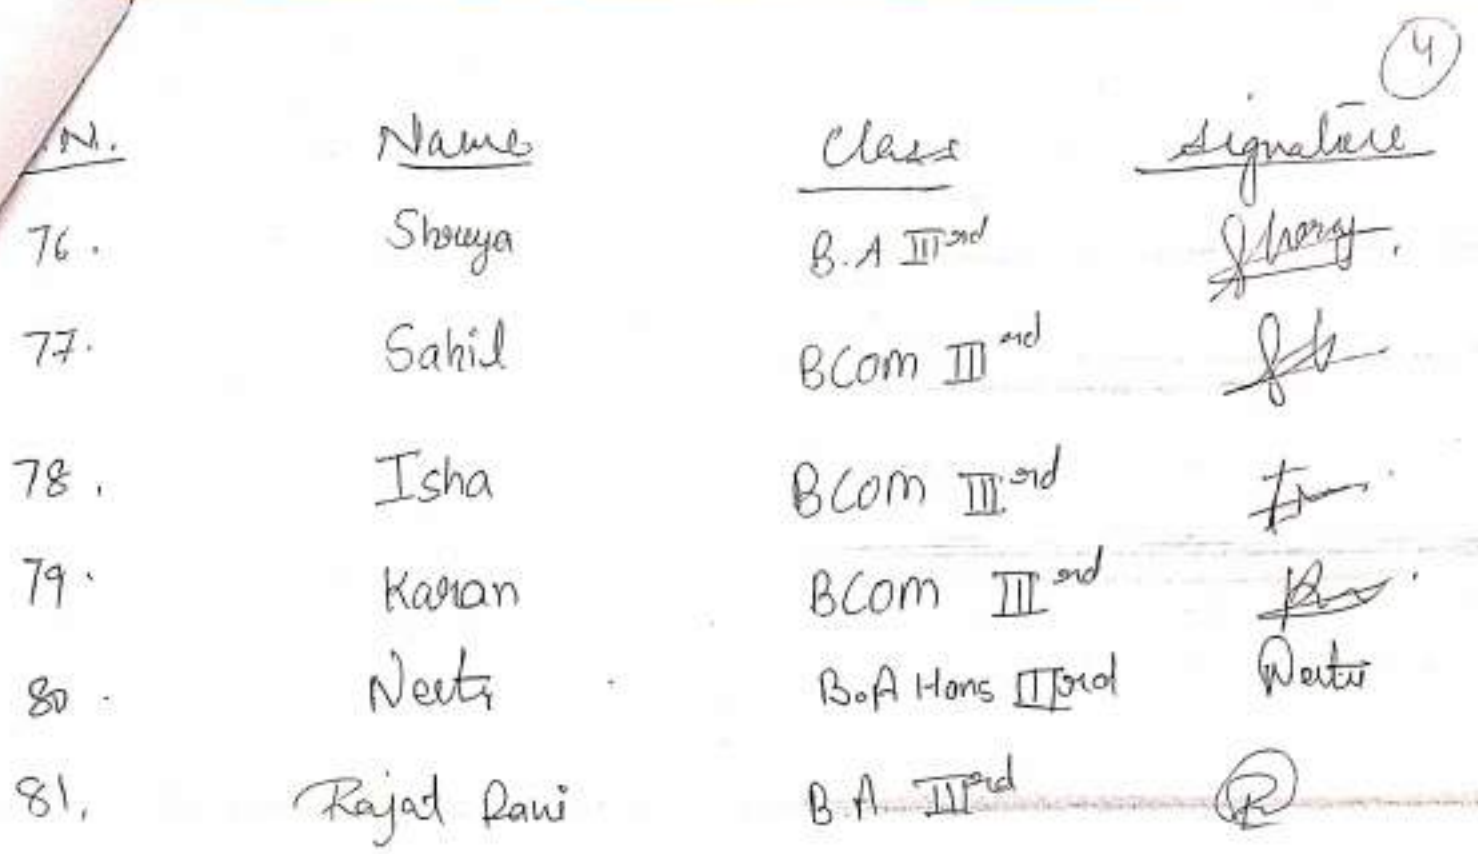 4
.N. Name Class Signature
76. Shreya B.A IIIrd
77. Sahil BCom IIIrd
78. Isha BCom IIIrd
79. Karan BCom IIIrd
80. Neeti B.A Hons IIIrd Neeti
81. Rajat Rani B.A. IIIrd R